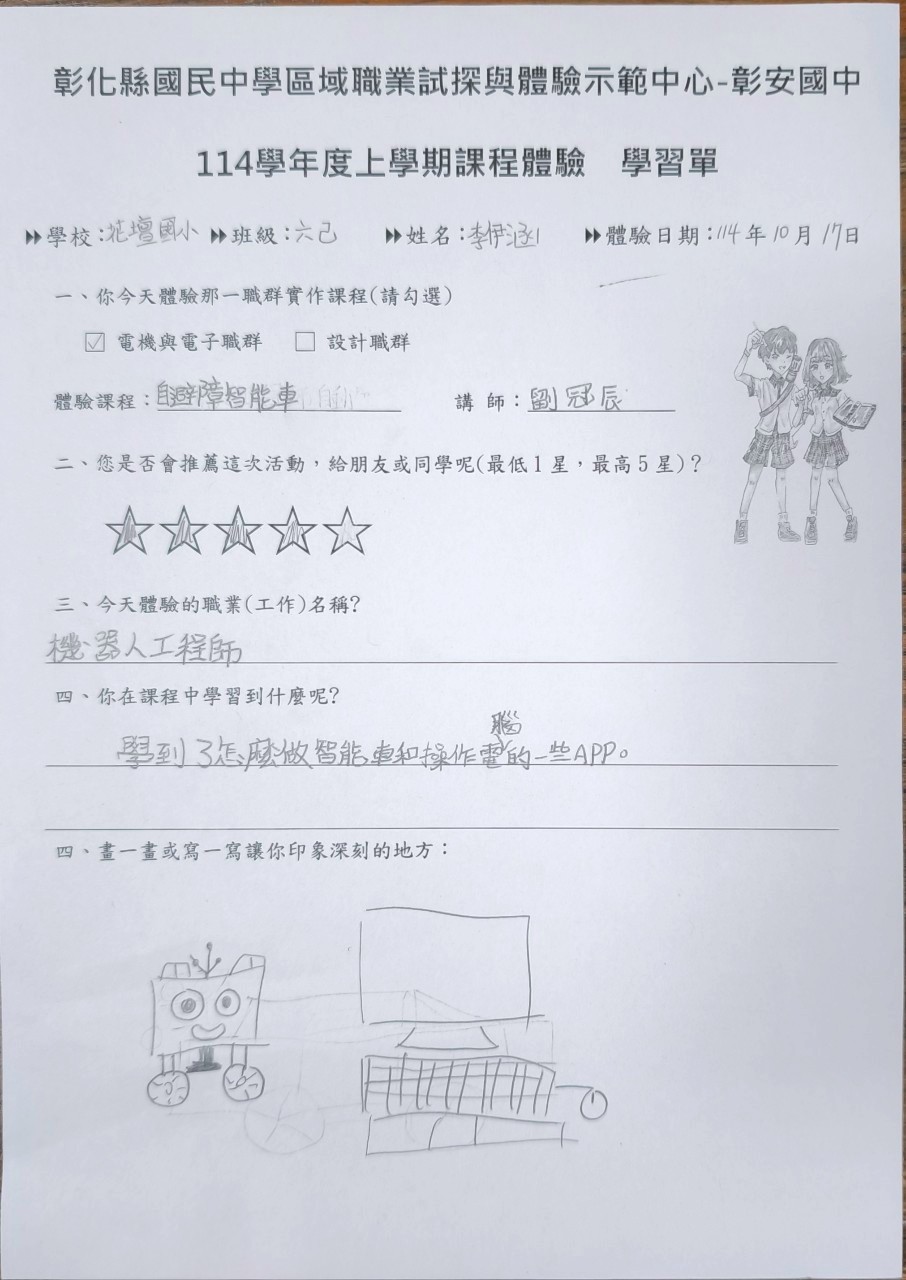 彰化縣國民中學區域職業試探與體驗示範中心-彰安國中
114學年度上學期課程體驗 學習單
學校:花壇國小 班級:六己 姓名:李伊涵 體驗日期:114年10月17日
一、你今天體驗那一職群實作課程(請勾選)
☑ 電機與電子職群 ☐ 設計職群
體驗課程:自避障智能車 講 師:劉冠辰
二、您是否會推薦這次活動,給朋友或同學呢(最低1星,最高5星)?
三、今天體驗的職業(工作)名稱?
機器人工程師
四、你在課程中學習到什麼呢?
學到了怎麼做智能車和操作電腦的一些APP。
四、畫一畫或寫一寫讓你印象深刻的地方: